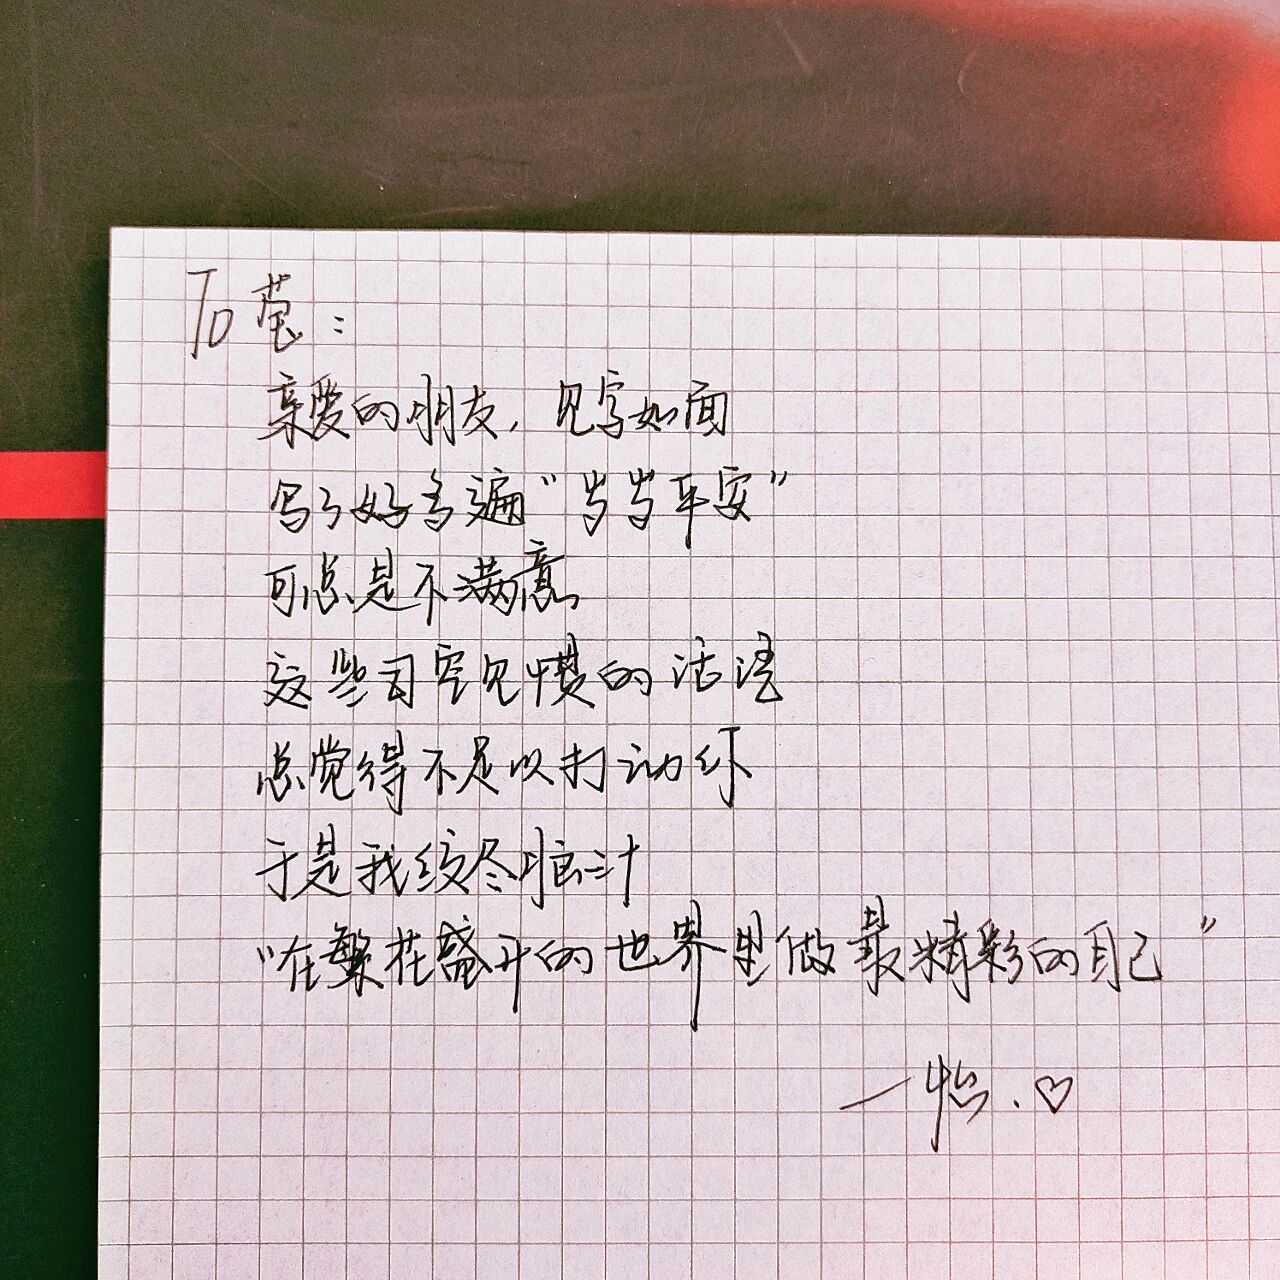 To 莹：
亲爱的朋友，见字如面
写了好多遍“岁岁平安”
可总是不满意
这些司空见惯的话语
总觉得不足以打动你
于是我绞尽脑汁
“在繁花盛开的世界里做最精彩的自己”
一怡.♡